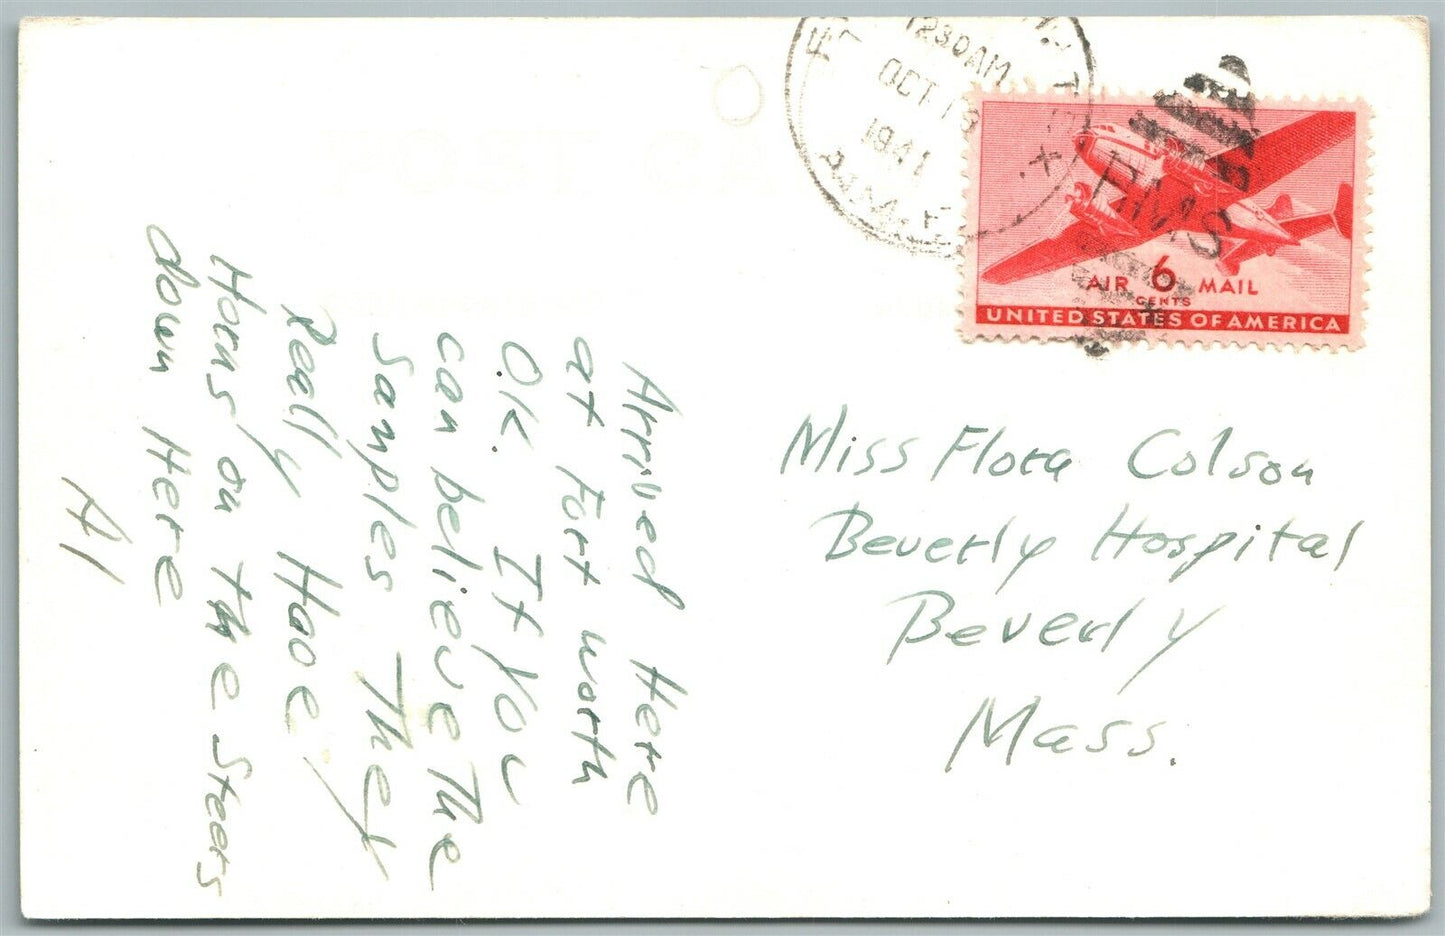 Arrived Here
at Fort worth
O.K. If You
can believe The
Samples They
Really Have
Horns on the Steers
down Here
Al
1230AM
OCT 13
1941
AIR 6 MAIL
CENTS
UNITED STATES OF AMERICA
Miss Flora Colson
Beverly Hospital
Beverly
Mass.